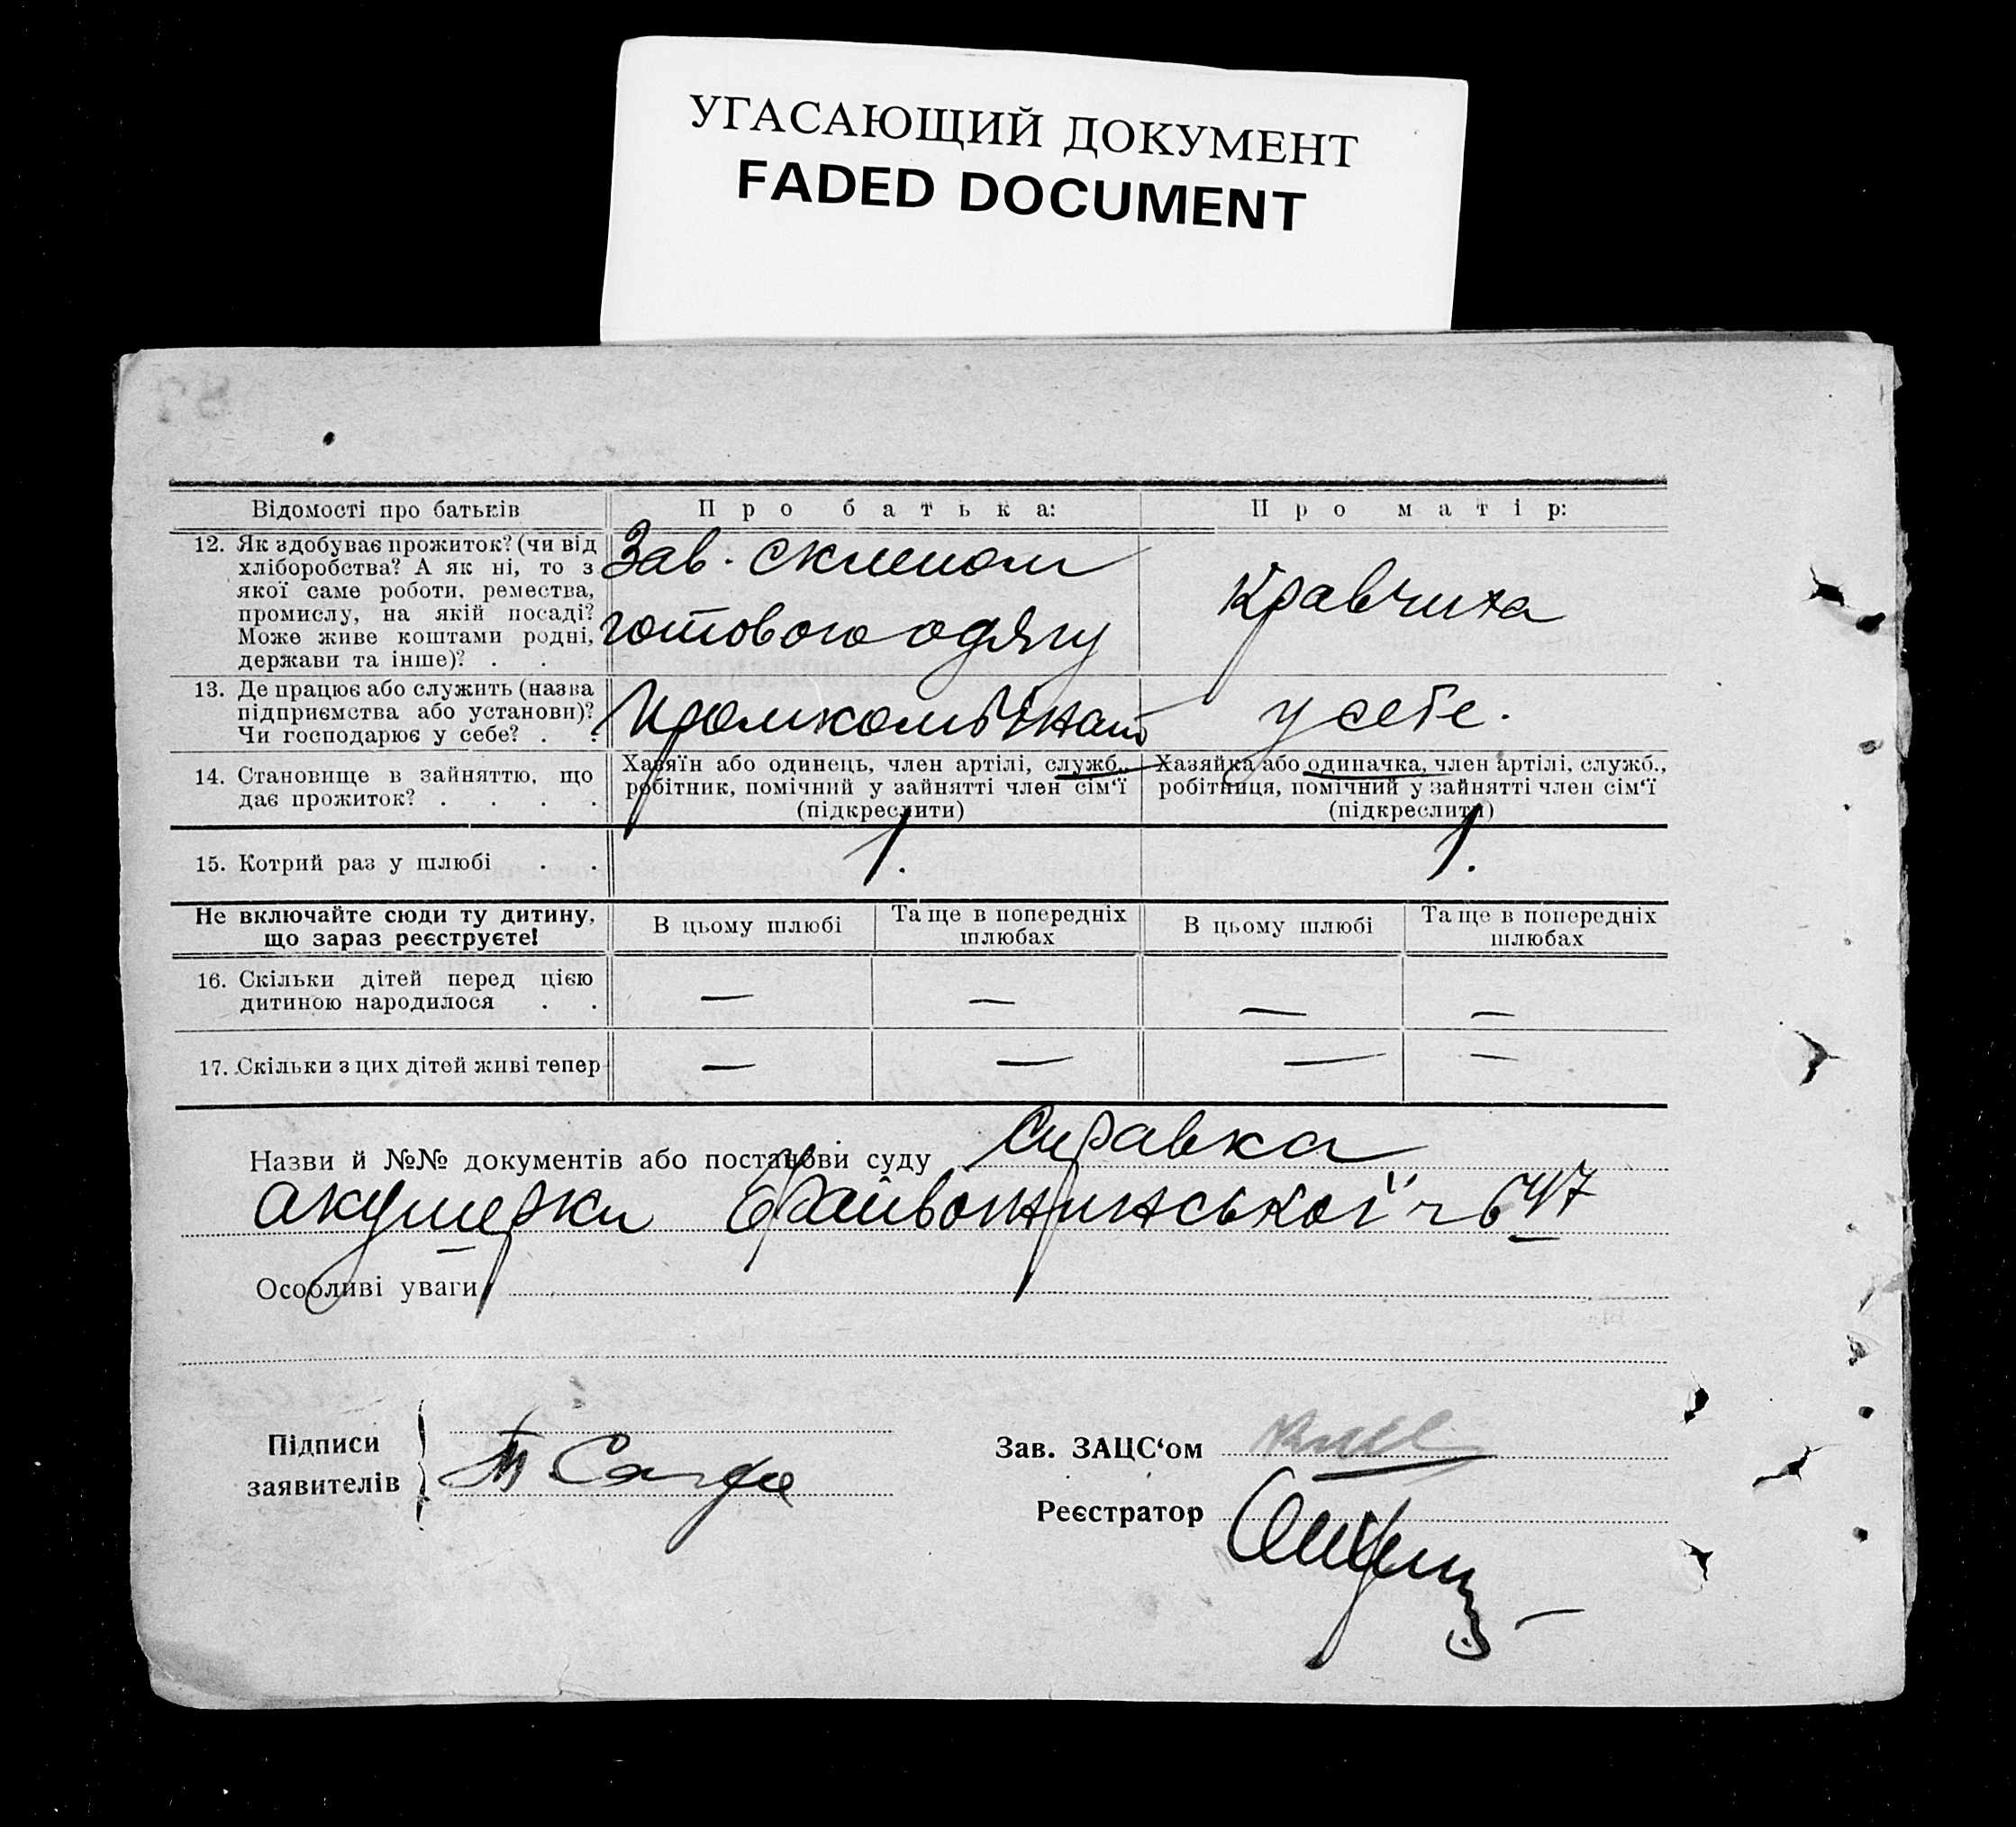 УГАСАЮЩИЙ ДОКУМЕНТ
FADED DOCUMENT
Відомості про батьків
Про батька:
Про матір:
12. Як здобуває прожиток? (чи від
хліборобства? А як ні, то з
якої саме роботи, ремества,
промислу, на якій посаді?
Може живе коштами родні,
держави та інше)? . .
Зав. склепом
готового одягу
Кравчиха
13. Де працює або служить (назва
підприємства або установи)?
Чи господарює у себе? . .
Промкомбінат
у себе.
14. Становище в зайняттю, що
дає прожиток? . . . .
Хазяїн або одинець, член артілі, служб.,
робітник, помічний у зайнятті член сім'ї
(підкреслити)
Хазяйка або одиначка, член артілі, служб.,
робітниця, помічний у зайнятті член сім'ї
(підкреслити)
15. Котрий раз у шлюбі . .
1.
1.
Не включайте сюди ту дитину,
що зараз реєструєте!
В цьому шлюбі
Та ще в попередніх
шлюбах
В цьому шлюбі
Та ще в попередніх
шлюбах
16. Скільки дітей перед цією
дитиною народилося . .
— — — —
17. Скільки з цих дітей живі тепер
— — — —
Назви й №№ документів або постанови суду Справка
акушерки
Особливі уваги
Підписи
заявителів
Зав. ЗАЦС'ом
Реєстратор